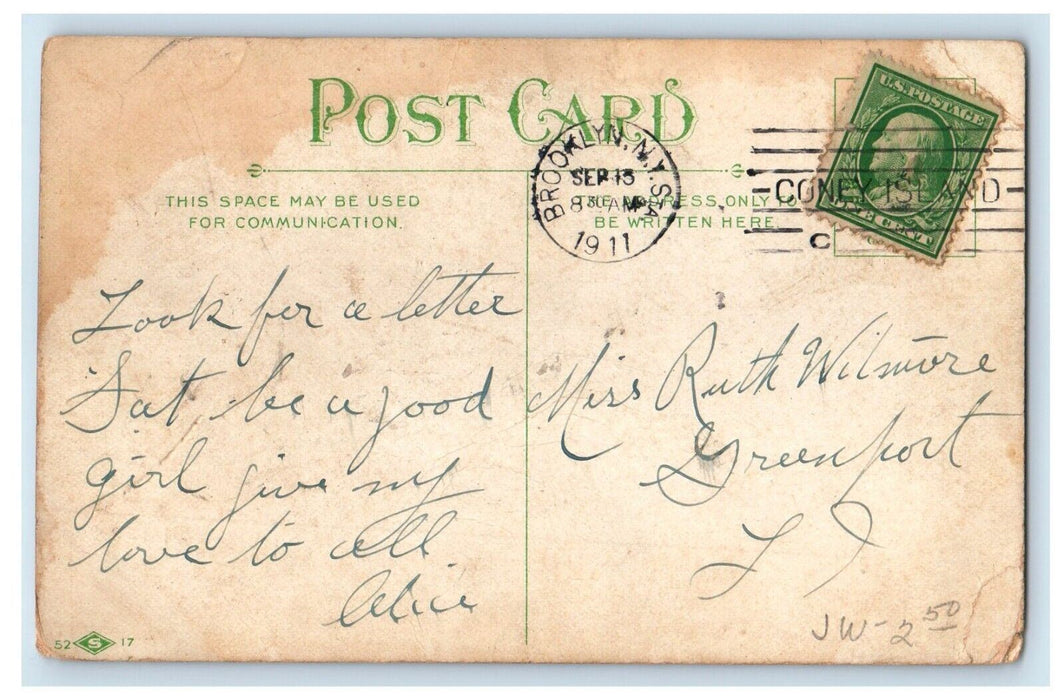 POST CARD
THIS SPACE MAY BE USED
FOR COMMUNICATION.
THE ADDRESS ONLY TO
BE WRITTEN HERE.
BROOKLYN, N.Y. STA
SEP 13
830 AM
1911
CONEY ISLAND
C
U.S. POSTAGE
ONE CENT
Look for a letter
Sat. be a good
girl give my
love to all
Alice
Miss Ruth Wilmore
Greenport
L I
JW-2 50
52 S 17